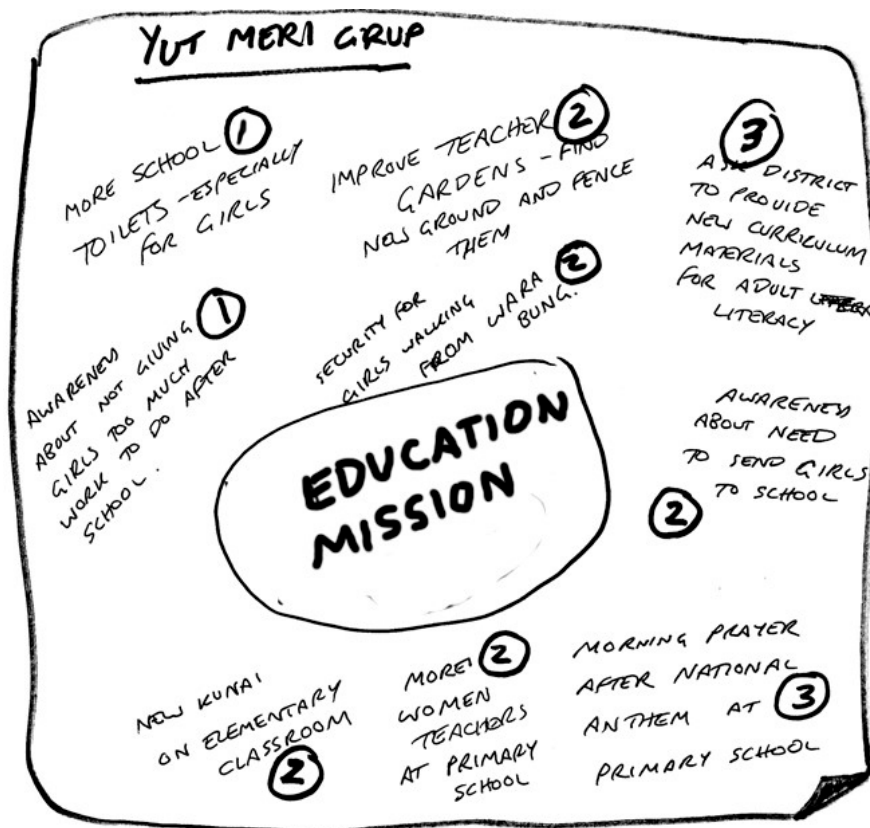 YUT MERI GRUP
MORE SCHOOL 1
TOILETS - ESPECIALLY
FOR GIRLS
IMPROVE TEACHER 2
GARDENS - FIND
NEW GROUND AND FENCE
THEM
3
ASK DISTRICT
TO PROVIDE
NEW CURRICULUM
MATERIALS
FOR ADULT
LITERACY
AWARENESS
ABOUT NOT GIVING 1
GIRLS TOO MUCH
WORK TO DO AFTER
SCHOOL.
SECURITY FOR
GIRLS WALKING 2
FROM WARA
BUNG.
EDUCATION
MISSION
AWARENESS
ABOUT NEED
TO SEND GIRLS
TO SCHOOL
2
NEW KUNAI
ON ELEMENTARY
CLASSROOM
2
MORE 2
WOMEN
TEACHERS
AT PRIMARY
SCHOOL
MORNING PRAYER
AFTER NATIONAL
ANTHEM AT 3
PRIMARY SCHOOL